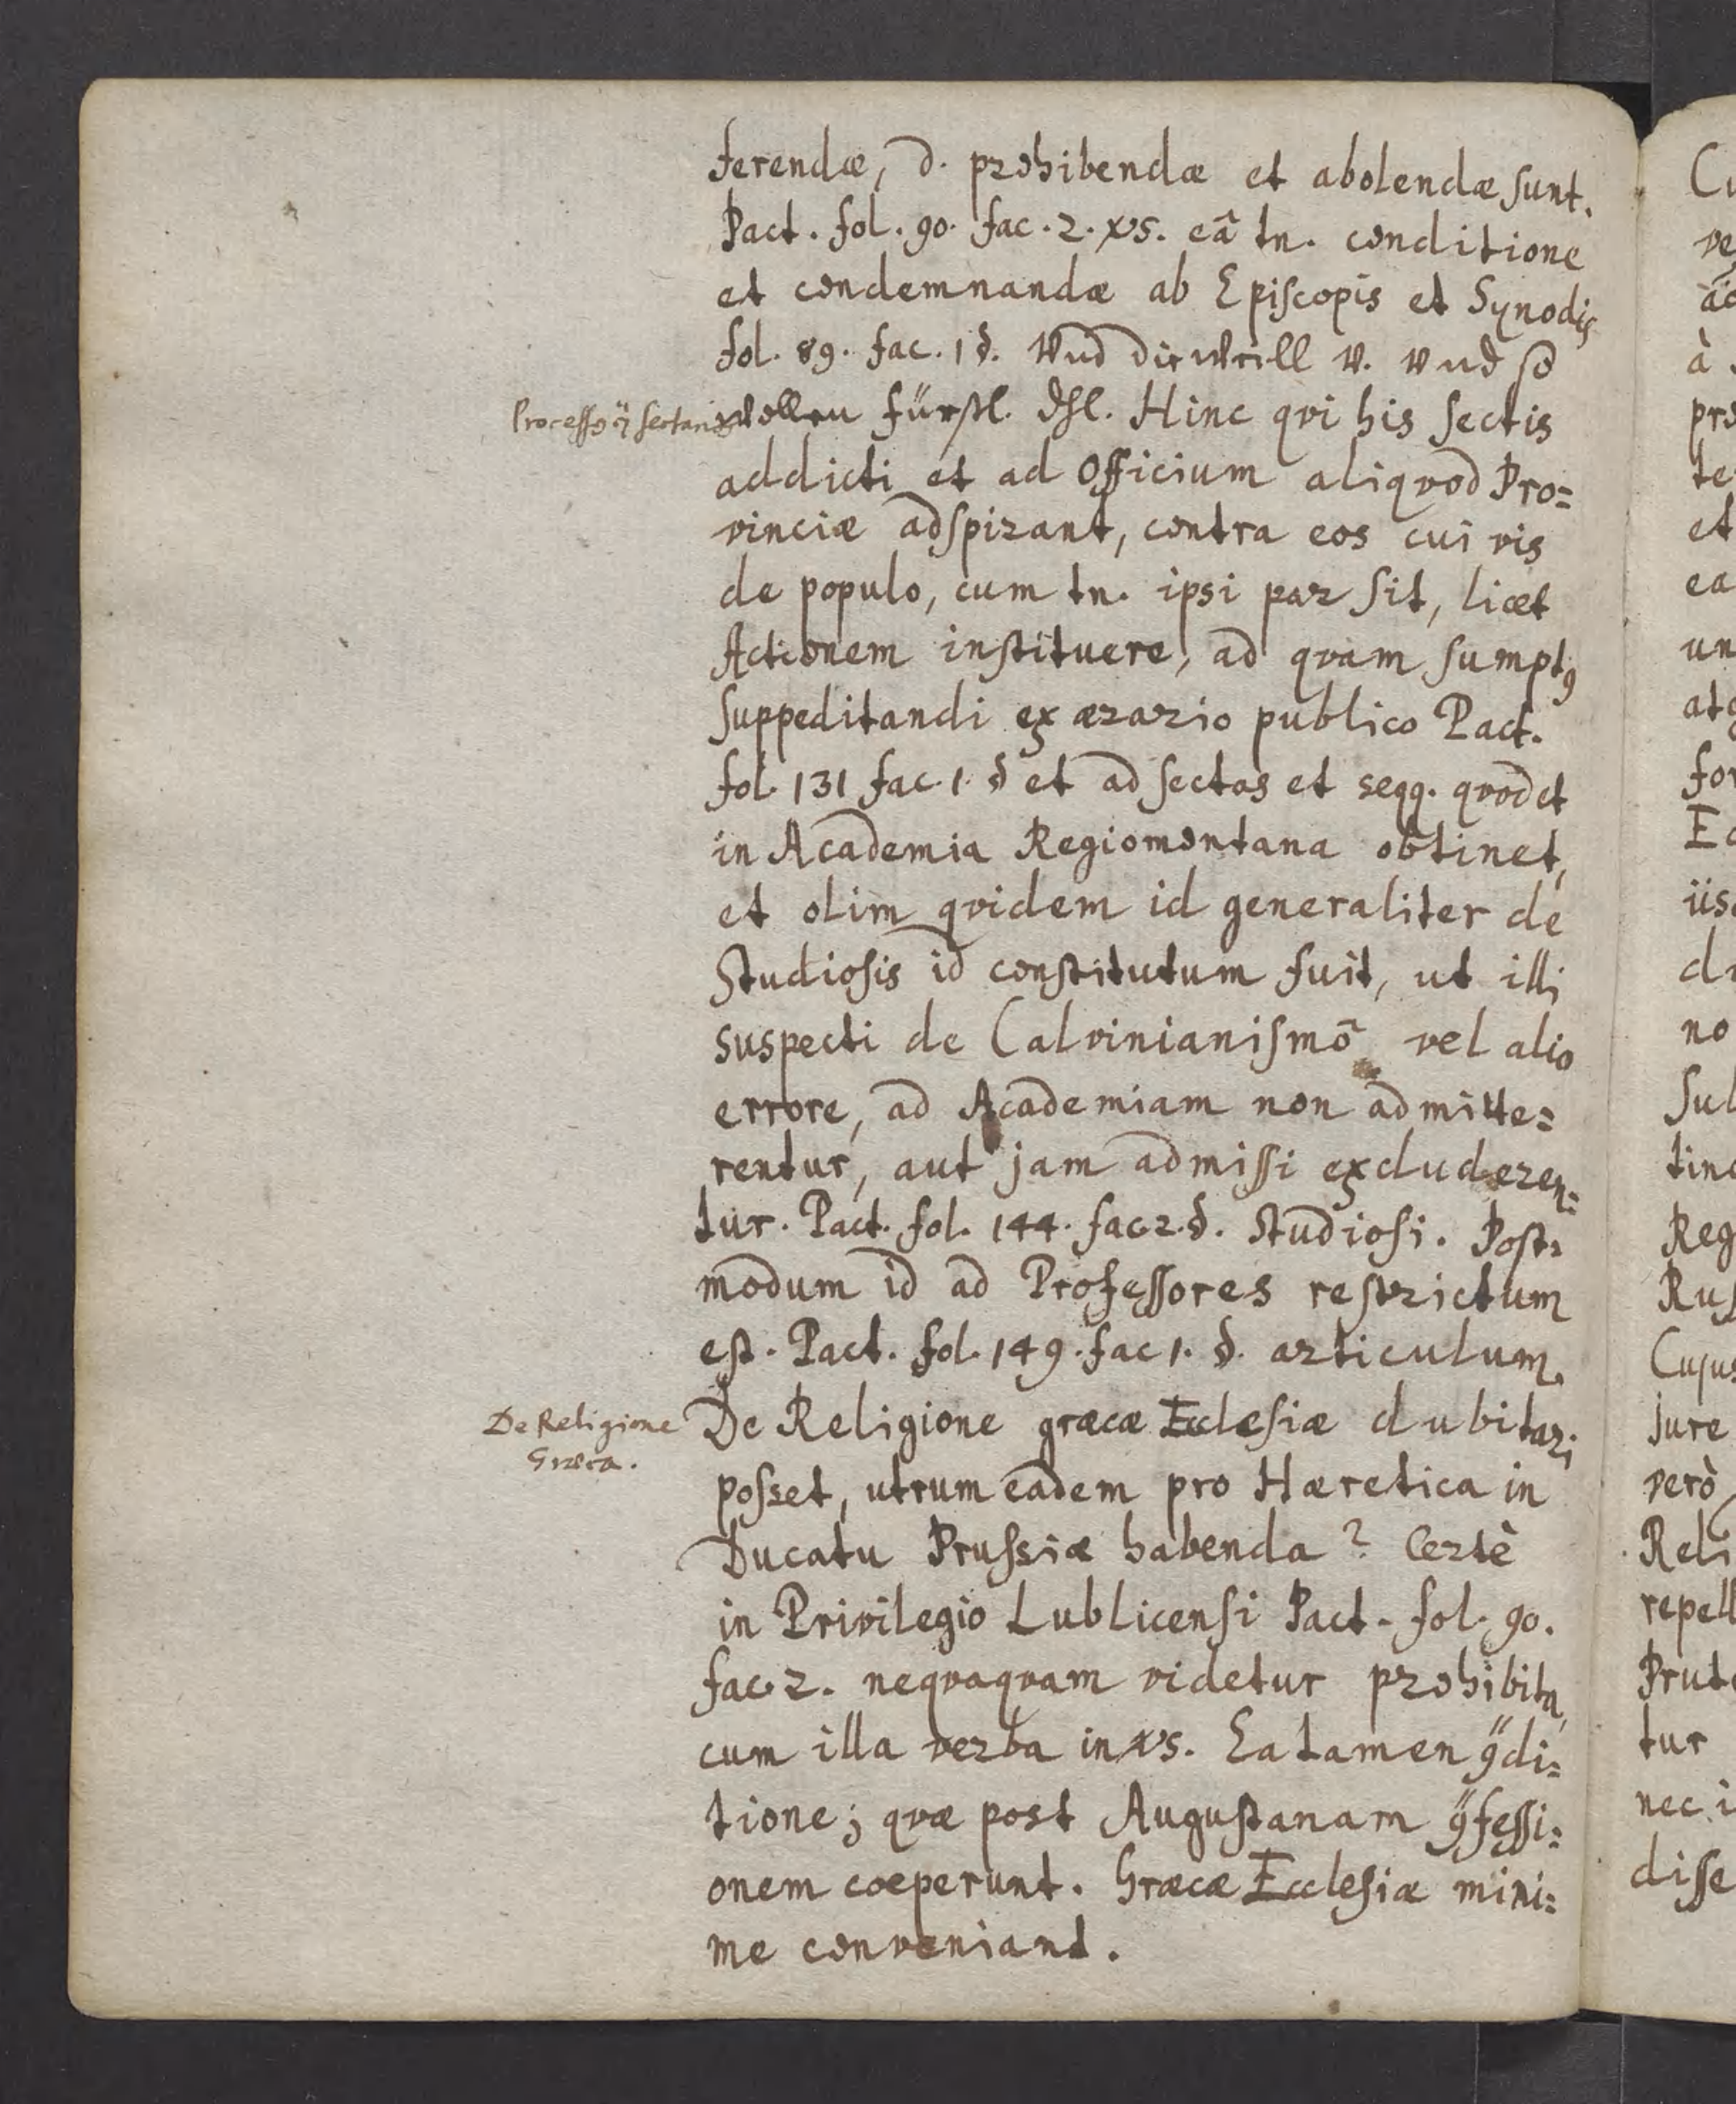 ferendæ, d. prohibendæ et abolendæ sunt.
Pact. fol. 90. fac. 2. vs. eâ tn. conditione
et condemnandæ ab Episcopis et Synodis
fol. 89. fac. 1 §. Und die weill W. Und so
Process9 sectarios
wollen fürstl. Dhl. Hinc qvi his sectis
addicti et ad Officium aliqvod Pro=
vinciæ adspirant, contra eos cui vis
de populo, cum tn. ipsi par sit, licet
Actionem instituere, ad qvam sumpt9
suppeditandi ex ærario publico Pact.
fol. 131 fac. 1. § et ad sectas et seqq. qvod et
in Academia Regiomontana obtinet,
et olim qvidem id generaliter de
Studiosis id constitutum fuit, ut illi
suspecti de Calvinianismô vel alio
errore, ad Academiam non admitte=
rentur, aut jam admissi excluderen=
tur. Pact. fol. 144. fac 2. §. Studiosi. Post=
modum id ad Professores restrictum
est. Pact. fol. 149. fac 1. §. articulum.
De Religione
Græca.
De Religione græcæ Ecclesiæ dubitari
posset, utrum eadem pro Hæretica in
Ducatu Prussiæ habenda? Certè
in Privilegio Lublicensi Pact. fol. 90.
fac. 2. neqvaqvam videtur prohibita,
cum illa verba in vs. Ea tamen 9di=
tione; qvæ post Augustanam 9fessi=
onem coeperunt. Græcæ Ecclesiæ mini=
me conveniant.